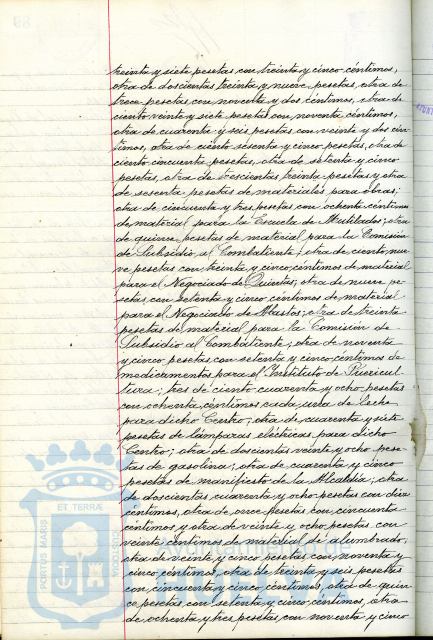 treinta y siete pesetas con treinta y cinco céntimos,
otra de doscientas treinta y nueve pesetas, otra de
trece pesetas con noventa y dos céntimos, otra de
ciento veinte y siete pesetas con noventa céntimos,
otra de cuarenta y seis pesetas con veinte y dos cén-
timos, otra de ciento sesenta y cinco pesetas, otra de
ciento cincuenta pesetas, otra de setenta y cinco
pesetas, otra de trescientas treinta pesetas y otra
de sesenta pesetas de materiales para obras;
otra de cincuenta y tres pesetas con ochenta céntimos
de material para la Escuela de Mutilados; otra
de quince pesetas de material para la Comisión
de Subsidio al Combatiente; otra de ciento nue-
ve pesetas con treinta y cinco céntimos de material
para el Negociado de Quintas; otra de nueve pe-
setas con setenta y cinco céntimos de material
para el Negociado de Abastos; otra de treinta
pesetas de material para la Comisión de
Subsidio al Combatiente; otra de noventa
y cinco pesetas con setenta y cinco céntimos de
medicamentos para el Instituto de Puericul-
tura; tres de ciento cuarenta y ocho pesetas
con ochenta céntimos cada una de leche
para dicho Centro; otra de cuarenta y siete
pesetas de lámparas eléctricas para dicho
Centro; otra de doscientas veinte y ocho pese-
tas de gasolina; otra de cuarenta y cinco
pesetas de manifiesto de la Alcaldía; otra
de doscientas cuarenta y ocho pesetas con diez
céntimos, otra de once pesetas con cincuenta
céntimos y otra de veinte y ocho pesetas con
veinte céntimos de material de alumbrado;
otra de veinte y cinco pesetas con noventa y
cinco céntimos, otra de treinta y seis pesetas
con cincuenta y cinco céntimos, otra de quin-
ce pesetas con setenta y cinco céntimos, otra
de ochenta y tres pesetas con noventa y cinco
ET TERRÆ
PORTUS MARIS